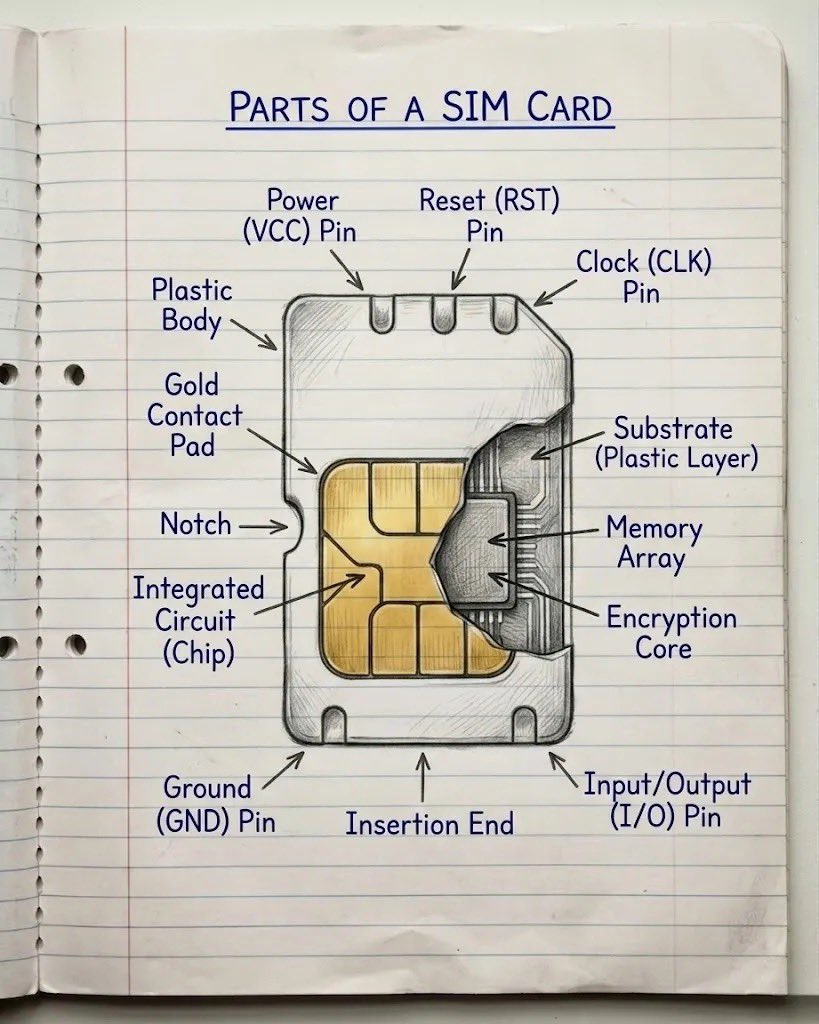 PARTS OF A SIM CARD
Power
(VCC) Pin
Reset (RST)
Pin
Clock (CLK)
Pin
Plastic
Body
Gold
Contact
Pad
Substrate
(Plastic Layer)
Notch
Memory
Array
Integrated
Circuit
(Chip)
Encryption
Core
Ground
(GND) Pin
Insertion End
Input/Output
(I/O) Pin